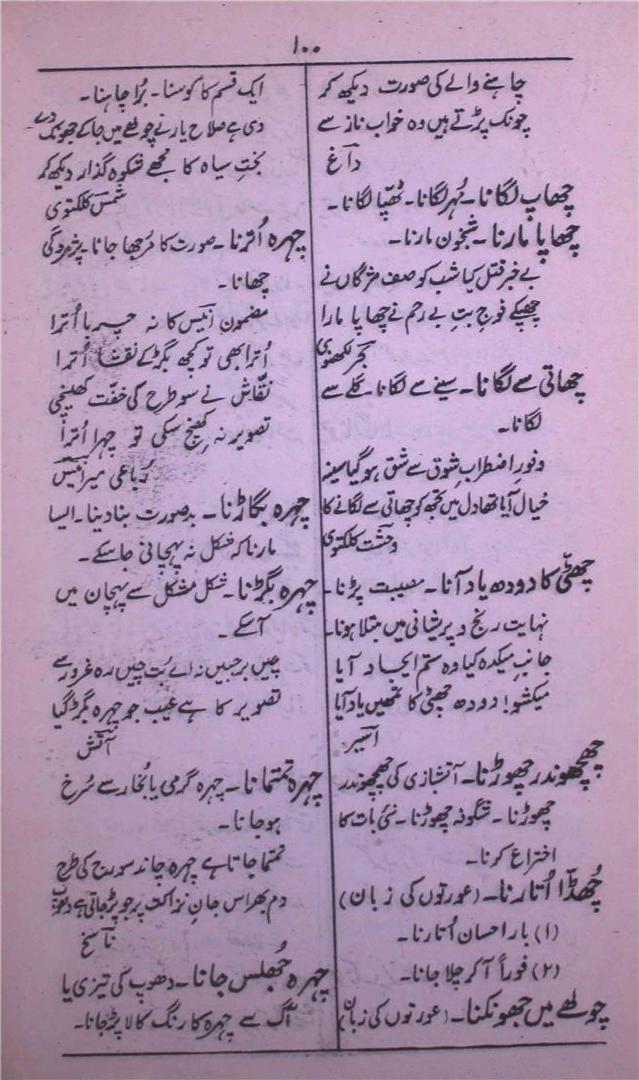 ۱۰۰
چاہنے والے کی صورت دیکھ کر
چونک پڑتے ہیں وہ خواب ناز سے
داغؔ
چھاپ لگانا۔ مُہر لگانا۔ ٹھپّا لگانا۔
چھاپا مارنا۔ شبخون مارنا۔
بے خبر قتل کیا شب کو صف مژگاں نے
چھپکے فوجِ بتِ بے رحم نے چھاپا مارا
لکھنوی
چھاتی سے لگانا۔ سینے سے لگانا۔ گلے سے
لگانا۔
وفورِ اضطرابِ شوق سے شق ہوگیا سینہ
خیال آیا تھا دل میں تجھ کو چھاتی سے لگانے کا
وحشت کلکتوی
چھٹی کا دودھ یاد آنا۔ مصیبت پڑنا۔
نہایت رنج و پریشانی میں مبتلا ہونا۔
جانبِ میکدہ کیا وہ ستم ایجاد آیا
میکشو! دودھ چھٹی کا تمھیں یاد آیا
اسیرؔ
چھچھوندر چھوڑنا۔ آتشبازی کی چھچھوندر
چھوڑنا۔ شگوفہ چھوڑنا۔ نئی بات کا
اختراع کرنا۔
چُھدّا اُتارنا۔ (عورتوں کی زبان)
(۱) بار احسان اُتارنا۔
(۲) فوراً آکر چلا جانا۔
چولھے میں جھونکنا۔ (عورتوں کی زبان)
ایک قسم کا کوسنا۔ بُرا چاہنا۔
دی ہے صلاح یار نے چولھے میں جا کے جھونک دے
بختِ سیاہ کا مجھے شکوہ گذار دیکھ کر
شمس کلکتوی
چہرہ اُترنا۔ صورت کا مرجھا جانا۔ پژمردگی
چھانا۔
مضمون انیسؔ کا نہ چربا اُترا
اُترا بھی تو کچھ بگڑ کے نقشا اُترا
نقّاش نے سو طرح کی خفّت کھینچی
تصویر نہ کھنچ سکی تو چہرا اُترا
رُباعی میر انیسؔ
چہرہ بگاڑنا۔ بدصورت بنا دینا۔ ایسا
مارنا کہ شکل نہ پہچانی جا سکے۔
چہرہ بگڑنا۔ شکل مشکل سے پہچان میں
آسکے۔
چیں بر جبیں نہ اے بتِ چیں رہ غرور سے
تصویر کا ہے عیب جو چہرہ بگڑ گیا
آتش
چہرہ تمتمانا۔ چہرہ گرمی یا بُخار سے سُرخ
ہو جانا۔
تمتما جاتا ہے چہرہ چاند سورج کی طرح
دم بھر اس جانِ نزاکت پر جو پڑ جاتی ہے دھوپ
ناسخ
چہرہ جُھلس جانا۔ دھوپ کی تیزی یا
آگ سے چہرہ کا رنگ کالا پڑ جانا۔